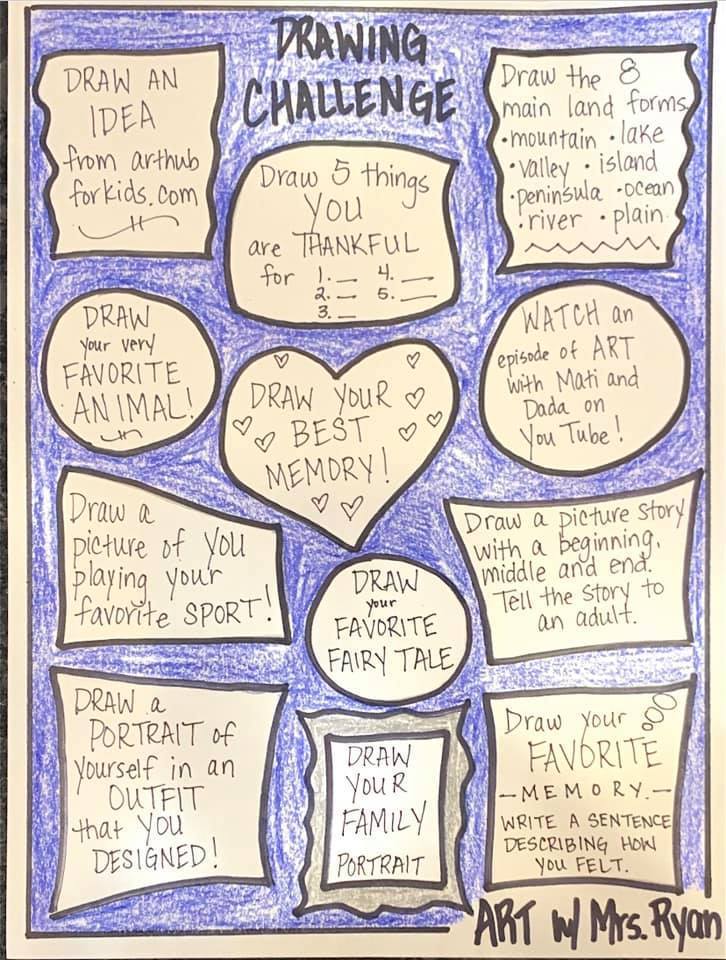 DRAWING
CHALLENGE
DRAW AN
IDEA
from arthub
forkids.com
Draw 5 things
YOU
are THANKFUL
for 1. __ 4. __
2. __ 5. __
3. __
Draw the 8
main land forms
•mountain •lake
•valley • island
•peninsula •ocean
•river • plain
DRAW
your very
FAVORITE
ANIMAL!
DRAW YOUR
BEST
MEMORY!
WATCH an
episode of ART
with Mati and
Dada on
YouTube!
Draw a
picture of you
playing your
favorite SPORT!
DRAW
your
FAVORITE
FAIRY TALE
Draw a picture story
with a beginning,
middle and end.
Tell the story to
an adult.
DRAW a
PORTRAIT of
yourself in an
OUTFIT
that you
DESIGNED!
DRAW
YOUR
FAMILY
PORTRAIT
Draw your
FAVORITE
—MEMORY.—
WRITE A SENTENCE
DESCRIBING HOW
YOU FELT.
ART w/ Mrs. Ryan